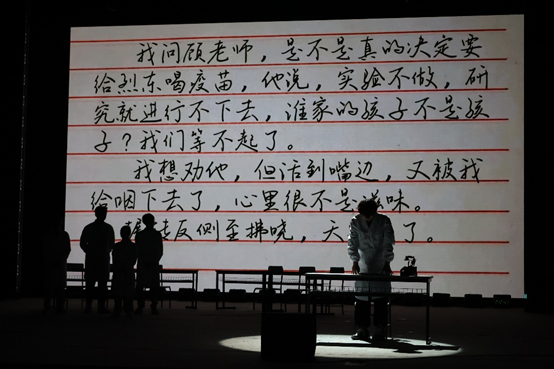 我问顾老师，是不是真的决定要
给烈东喝疫苗，他说，实验不做，研
究就进行不下去，谁家的孩子不是孩
子？我们等不起了。
我想劝他，但话到嘴边，又被我
给咽下去了，心里很不是滋味。
转反侧至拂晓，天了。